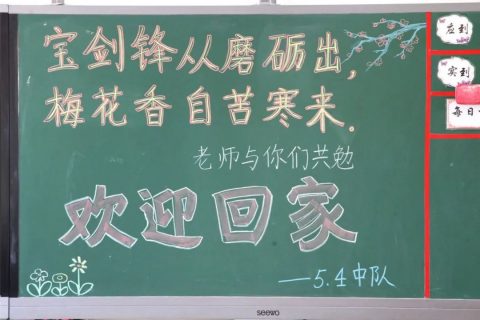 宝剑锋从磨砺出，
梅花香自苦寒来。
老师与你们共勉
欢迎回家
—5.4中队
应到
实到
每日
seewo